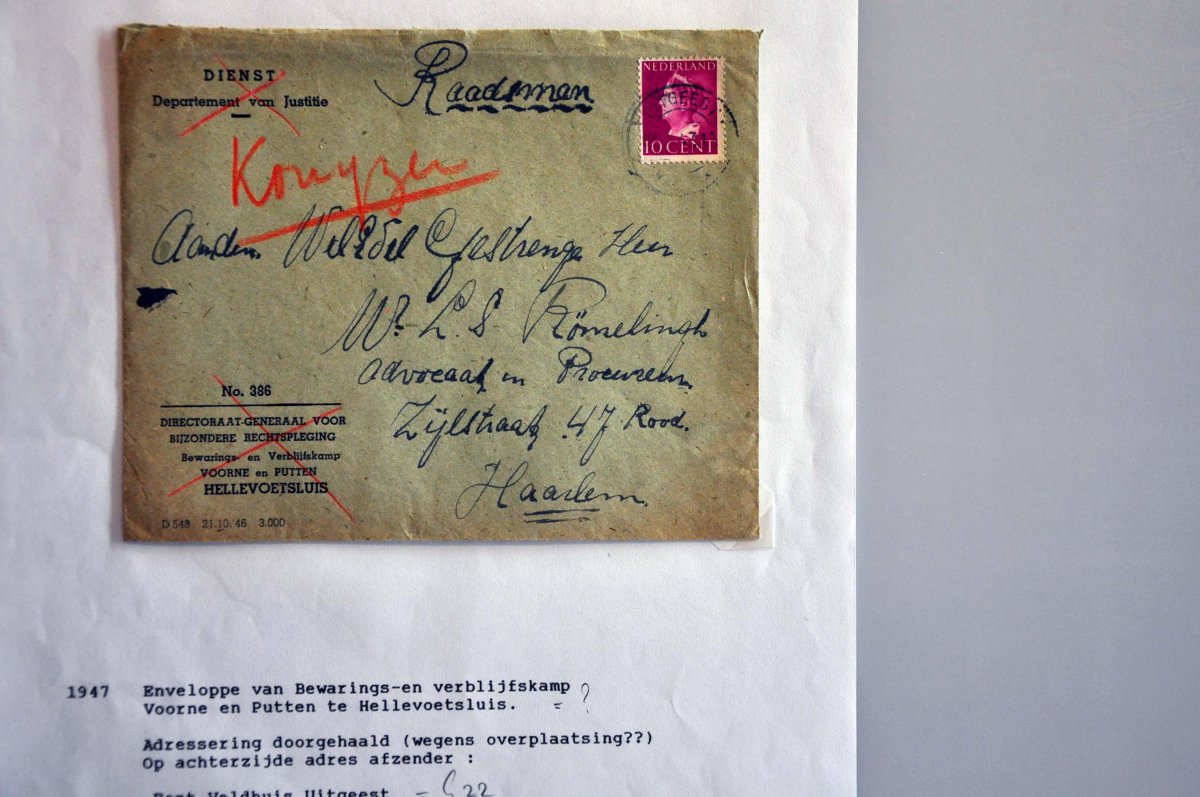 DIENST
Departement van Justitie
Raadsman
NEDERLAND
10 CENT
Aan den WelEdel Gestrenge Heer
Mr. L. S. Römelingh
Advocaat en Procureur
Zijlstraat 47 Rood.
Haarlem.
No. 386
DIRECTORAAT-GENERAAL VOOR
BIJZONDERE RECHTSPLEGING
Bewarings- en Verblijfskamp
VOORNE en PUTTEN
HELLEVOETSLUIS
D 548 21.10.'46 3.000
1947 Enveloppe van Bewarings-en verblijfskamp ?
Voorne en Putten te Hellevoetsluis. =
Adressering doorgehaald (wegens overplaatsing??)
Op achterzijde adres afzender :
Veldhuis Uitgeest = 22